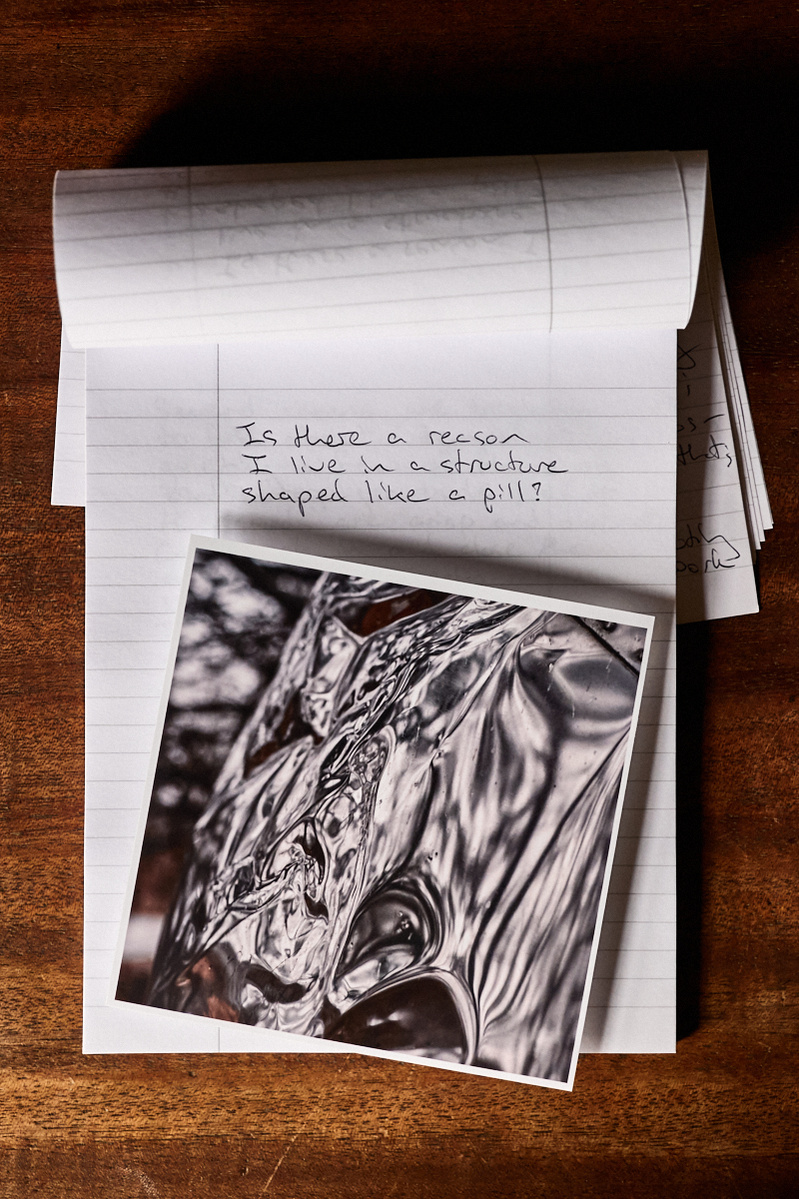 Is there a reason
I live in a structure
shaped like a pill?
that;